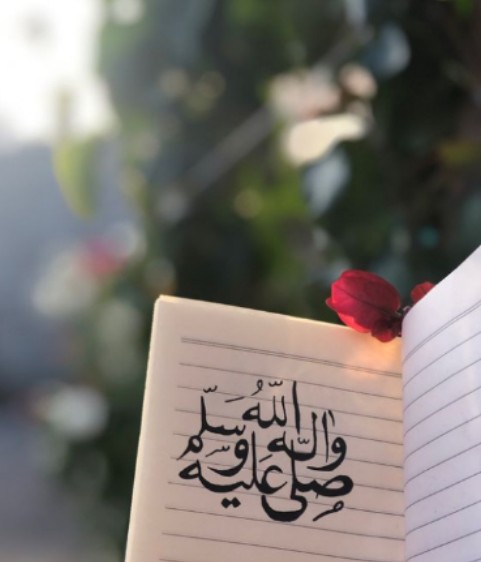 صلى الله عليه واله وسلم